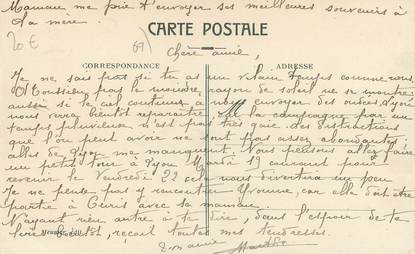 Maman me prie d'envoyer ses meilleures souvenirs à
ta mère.
20 €
69)
CARTE POSTALE
Chère amie,
CORRESPONDANCE
ADRESSE
Je ne sais pas si tu as un vilain temps comme nous
ici pas le moindre rayon de soleil ne se montre
aussi si le ciel continue à nous envoyer des ondées, Lyon
nous verra bientôt reparaître. La campagne par un
temps pluvieux n'est pas très gaie, des distractions
que l'on peut avoir ne sont pas assez abondantes;
celles de Lyon me manquent. Nous pensons aller faire
un petit tour à Lyon Mardi 19 courant pour
revenir le Vendredi 22 cela nous divertira un peu
Je ne pense pas y rencontrer Yvonne, car elle doit être
partie à Curis avec sa maman.
N'ayant rien autre à te dire, dans l'espoir de te
lire bientôt, reçoit toutes mes tendresses.
Ton amie
Marthe